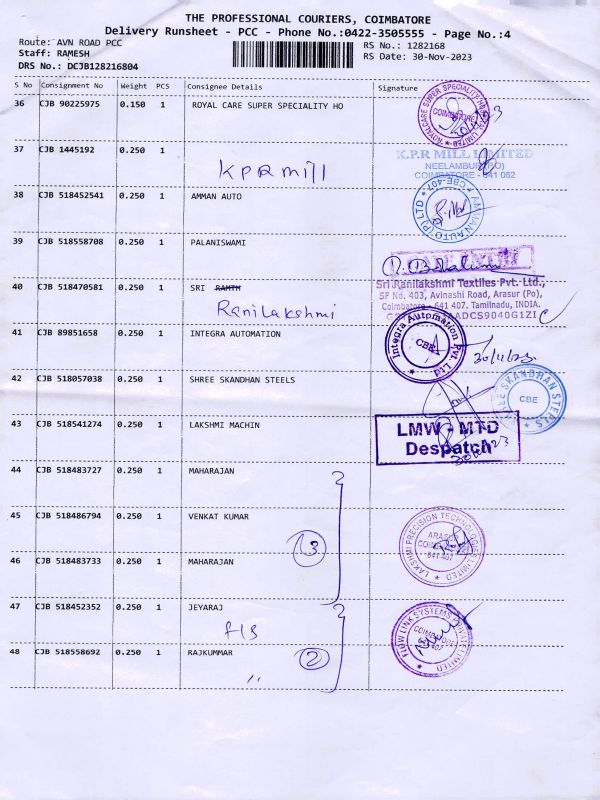 THE PROFESSIONAL COURIERS, COIMBATORE
Delivery Runsheet - PCC - Phone No.:0422-3505555 - Page No.:4
Route: AVN ROAD PCC
RS No.: 1282168
Staff: RAMESH
RS Date: 30-Nov-2023
DRS No.: DCJB128216804
S No Consignment No Weight PCS Consignee Details Signature
36 CJB 90225975 0.150 1 ROYAL CARE SUPER SPECIALITY HO
ROYALCARE SUPER SPECIALITY
COIMBATORE
37 CJB 1445192 0.250 1
KPR mill
K.P.R MILL LIMITED
NEELAMBUR (PO)
COIMBATORE - 641 062
38 CJB 518452541 0.250 1 AMMAN AUTO
AMMAN AUTO (P) LTD
CBE-407
39 CJB 518558708 0.250 1 PALANISWAMI
40 CJB 518470581 0.250 1 SRI RAMTM
Ranilakshmi
Sri Ranilakshmi Textiles Pvt. Ltd.,
SF No. 403, Avinashi Road, Arasur (Po),
Coimbatore - 641 407. Tamilnadu, INDIA.
41 CJB 89851658 0.250 1 INTEGRA AUTOMATION
Integra Automation Pvt. Ltd
CBE
30/11/23
42 CJB 518057038 0.250 1 SHREE SKANDHAN STEELS
CBE
43 CJB 518541274 0.250 1 LAKSHMI MACHIN
LMW - MTD
Despatch
44 CJB 518483727 0.250 1 MAHARAJAN
45 CJB 518486794 0.250 1 VENKAT KUMAR
3
LAKSHMI PRECISION TECHNOLOGIES LIMITED
ARASUR
641 407
46 CJB 518483733 0.250 1 MAHARAJAN
47 CJB 518452352 0.250 1 JEYARAJ
FLOW LINK SYSTEMS PRIVATE LIMITED
48 CJB 518558692 0.250 1 RAJKUMMAR
2
"